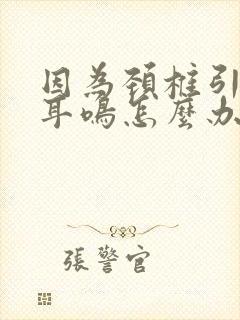 因為頚椎引
耳鳴怎麼办
張警官